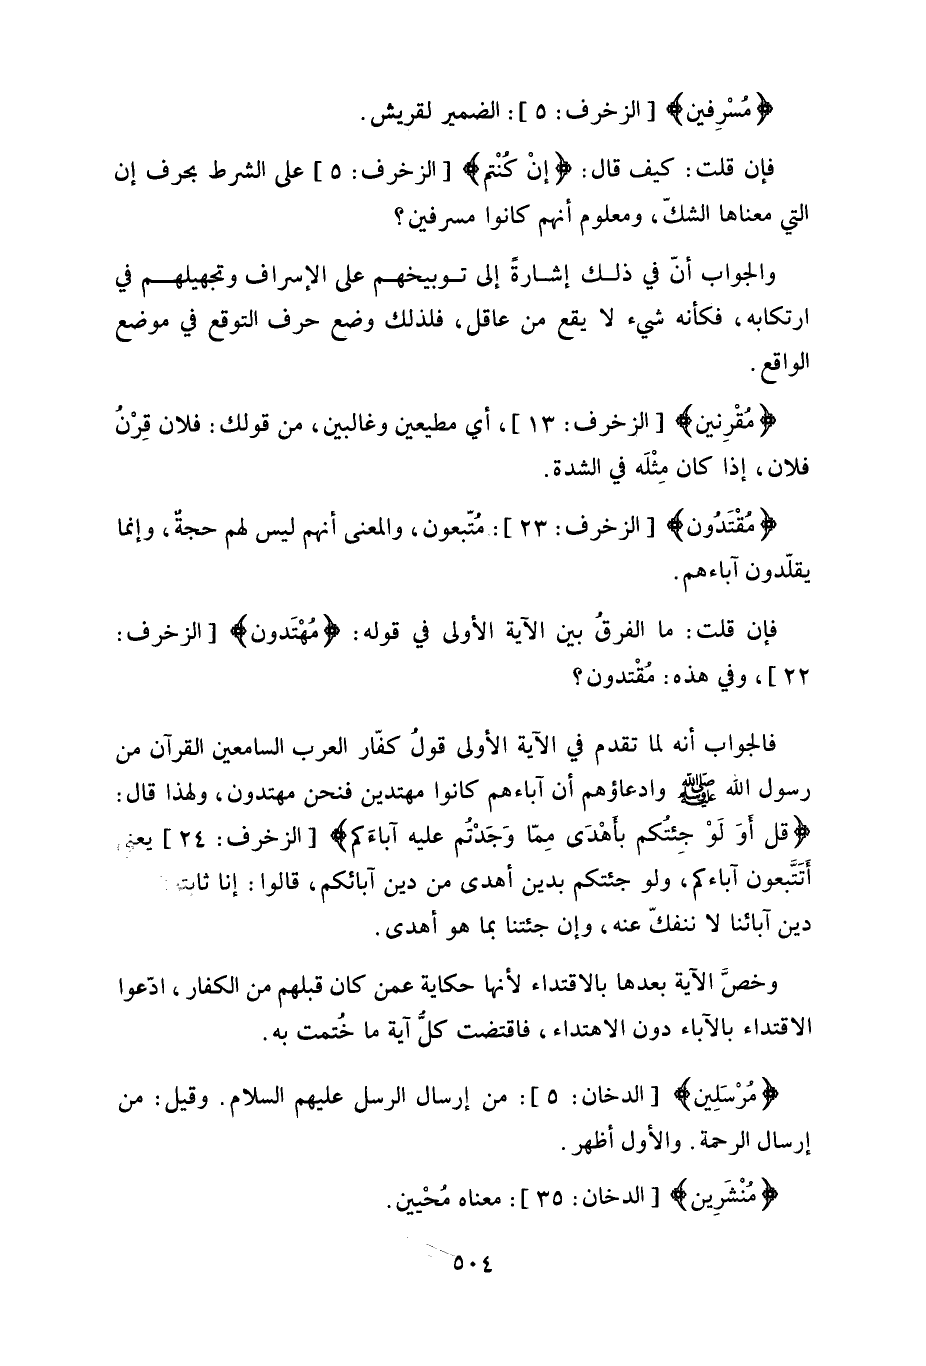 ﴿مُسْرِفين﴾ [ الزخرف: ٥ ]: الضمير لقريش.
فإن قلت: كيف قال: ﴿إنْ كُنْتم﴾ [ الزخرف: ٥ ] على الشرط بحرف إن
التي معناها الشكّ، ومعلوم أنهم كانوا مسرفين؟
والجواب أنّ في ذلك إشارةً إلى توبيخهم على الإسراف وتجهيلهم في
ارتكابه، فكأنه شيء لا يقع من عاقل، فلذلك وضع حرف التوقع في موضع
الواقع.
﴿مُقْرِنين﴾ [ الزخرف: ١٣ ]، أي مطيعين وغالبين، من قولك: فلان قِرْنُ
فلان، إذا كان مِثْلَه في الشدة.
﴿مُقْتَدُون﴾ [ الزخرف: ٢٣ ]: مُتّبعون، والمعنى أنهم ليس لهم حجةٌ، وإنما
يقلّدون آباءهم.
فإن قلت: ما الفرقُ بين الآية الأولى في قوله: ﴿مُهْتَدون﴾ [ الزخرف:
٢٢ ]، وفي هذه: مُقْتدون؟
فالجواب أنه لما تقدم في الآية الأولى قولُ كفّار العرب السامعين القرآن من
رسول الله ﷺ وادعاؤهم أن آباءهم كانوا مهتدين فنحن مهتدون، ولهذا قال:
﴿قل أَوَ لَوْ جِئتُكم بأَهْدَى مِمّا وَجَدْتُم عليه آباءَكم﴾ [ الزخرف: ٢٤ ] يعني
أَتَتَّبعون آباءكم، ولو جئتكم بدين أهدى من دين آبائكم، قالوا: إنا ثابتـ
دين آبائنا لا ننفكّ عنه، وإن جئتنا بما هو أهدى.
وخصَّ الآية بعدها بالاقتداء لأنها حكاية عمن كان قبلهم من الكفار، ادّعوا
الاقتداء بالآباء دون الاهتداء، فاقتضت كلُّ آية ما خُتمت به.
﴿مُرْسَلِين﴾ [ الدخان: ٥ ]: من إرسال الرسل عليهم السلام. وقيل: من
إرسال الرحمة. والأول أظهر.
﴿مُنْشَرِين﴾ [ الدخان: ٣٥ ]: معناه مُحْيين.
٥٠٤